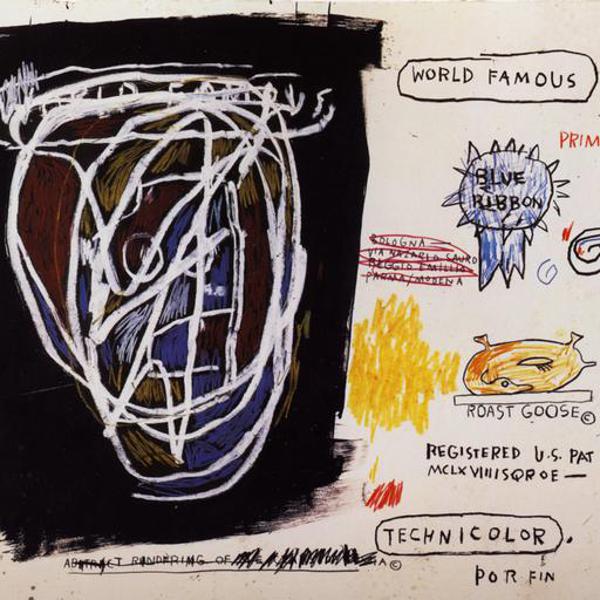 WORLD FAMOUS
PRIM
BLUE
RIBBON
BOLOGNA
VIA NAZARIO SAURO
REGGIO EMILIA
PARMA/MODENA
ROAST GOOSE©
REGISTERED U.S. PAT
MCLXVIIIISQROE—
TECHNICOLOR.
POR FIN
ABSTRACT RENDERING OF